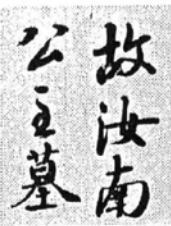 故汝南
公主墓